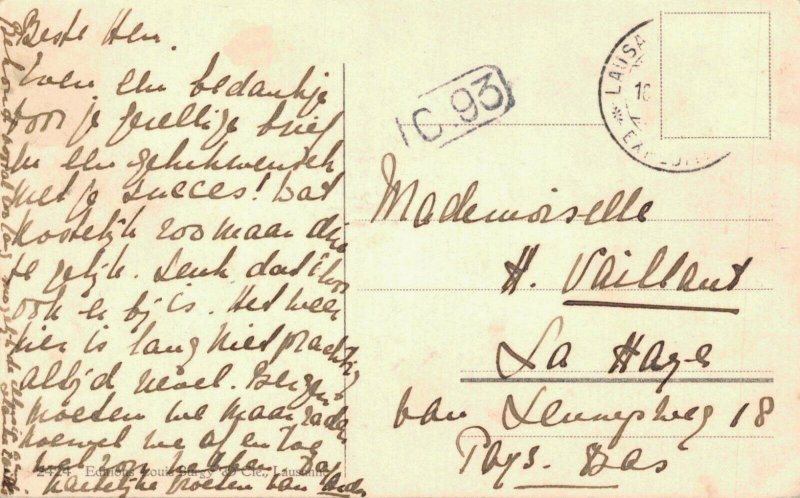 Beste Hen.
Even een bedankje
voor je gezellige brief
en een gelukwensch
met je succes! Wat
kostelijk zoo maar drie
te gelijk. Denk dat
ook er bij is. Het weer
hier is lang niet prachtig
altijd nevel. Bergen
moeten we maar raden
hoewel we af en toe
wel zon hebben.
Hartelijke groeten van
C. 93
LAUSA
10
EXP
Mademoiselle
H. Vaillant
La Haye
van Lennepweg 18
Pays-Bas
2424 Editions Louis Burgy & Cie., Lausanne